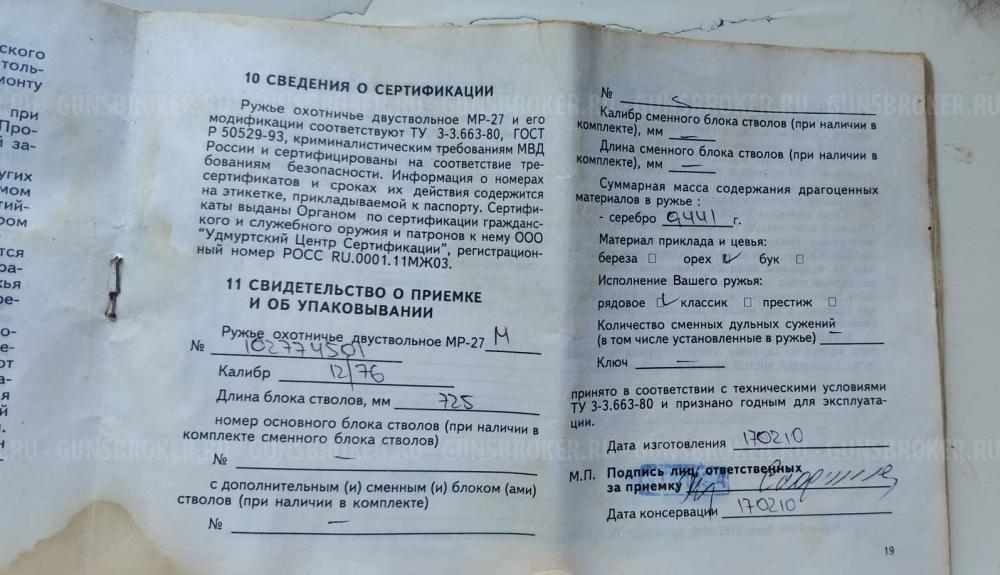 ского
толь-
монту
при
Про-
й за-
угих
мом
тий-
ром
тся
ра-
жья
ре-
о-
е-
ют
а-
я
й
.
н
10 СВЕДЕНИЯ О СЕРТИФИКАЦИИ
Ружье охотничье двуствольное МР-27 и его
модификации соответствуют ТУ 3-3.663-80, ГОСТ
Р 50529-93, криминалистическим требованиям МВД
России и сертифицированы на соответствие тре-
бованиям безопасности. Информация о номерах
сертификатов и сроках их действия содержится
на этикетке, прикладываемой к паспорту. Сертифи-
каты выданы Органом по сертификации гражданс-
кого и служебного оружия и патронов к нему ООО
"Удмуртский Центр Сертификации", регистрацион-
ный номер РОСС RU.0001.11МЖ03.
11 СВИДЕТЕЛЬСТВО О ПРИЕМКЕ
И ОБ УПАКОВЫВАНИИ
Ружье охотничье двуствольное МР-27 М
№ 102774501
Калибр 12/76
Длина блока стволов, мм 725
номер основного блока стволов (при наличии в
комплекте сменного блока стволов)
№ —
с дополнительным (и) сменным (и) блоком (ами)
стволов (при наличии в комплекте)
№ —
№
Калибр сменного блока стволов (при наличии в
комплекте), мм —
Длина сменного блока стволов (при наличии в
комплекте), мм —
Суммарная масса содержания драгоценных
материалов в ружье :
- серебро 0,441 г.
Материал приклада и цевья:
береза □ орех ☑ бук □
Исполнение Вашего ружья:
рядовое ☑ классик □ престиж □
Количество сменных дульных сужений
(в том числе установленные в ружье) —
Ключ —
принято в соответствии с техническими условиями
ТУ 3-3.663-80 и признано годным для эксплуата-
ции.
Дата изготовления 170210
М.П. Подпись лиц, ответственных
за приемку
Дата консервации 170210
19
GUNSBROKER.RU